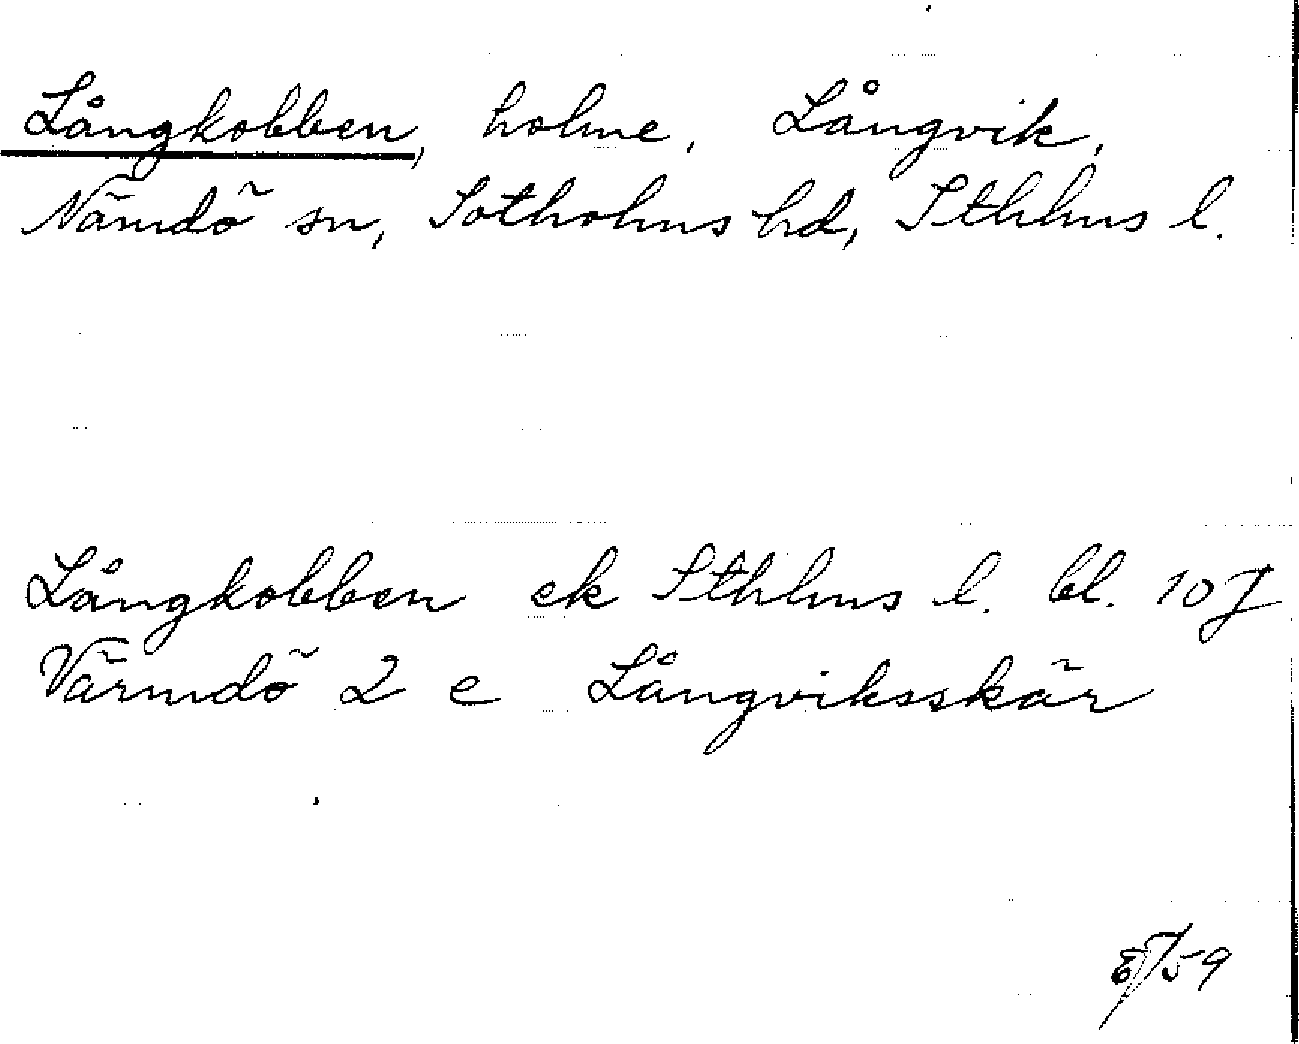 Långkobben, holme, Långvik,
Nämdö sn, Sotholms hd, Sthlms l.
Långkobben ek Sthlms l. bl. 107
Värmdö 2 e Långviksskär